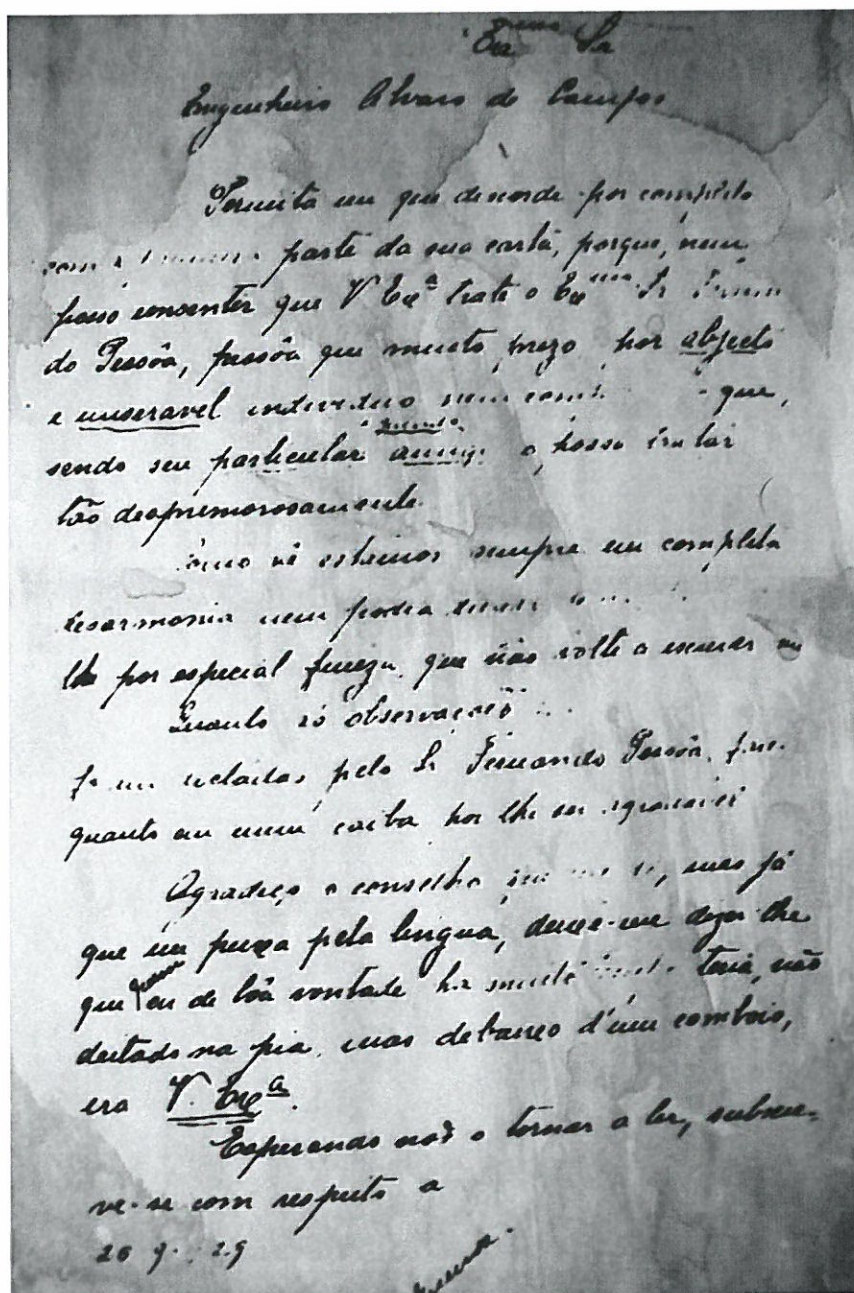 Exmo Sr
Engenheiro Alvaro de Campos
Permita-me que discorde por completo
com a primeira parte da sua carta, porque, nem
posso consentir que V. Exª trate o Exmo Sr. Fernan
do Pessôa, pessôa que muito prezo, por abjecto
e miseravel individuo nem que,
sendo seu particular amigo o possa tratar
tão desprimorosamente.
Como vê estamos sempre em completa
desarmonia nem podia deixar
lhe por especial fineza, que não volte a escrever
Quanto ás observações
pelo Sr. Fernando Pessôa,
quanto em mim caiba por lhe ser agradavel
Agradeço o conselho que me dá, mas já
que me puxa pela lingua, deixe-me dizer-lhe
que quem eu de bôa vontade ha muito teria, não
deitado na pia, mas debaixo d'um comboio,
era V. Exª.
Esperando não o tornar a ler, subscre-
ve-se com respeito a
26 9 29